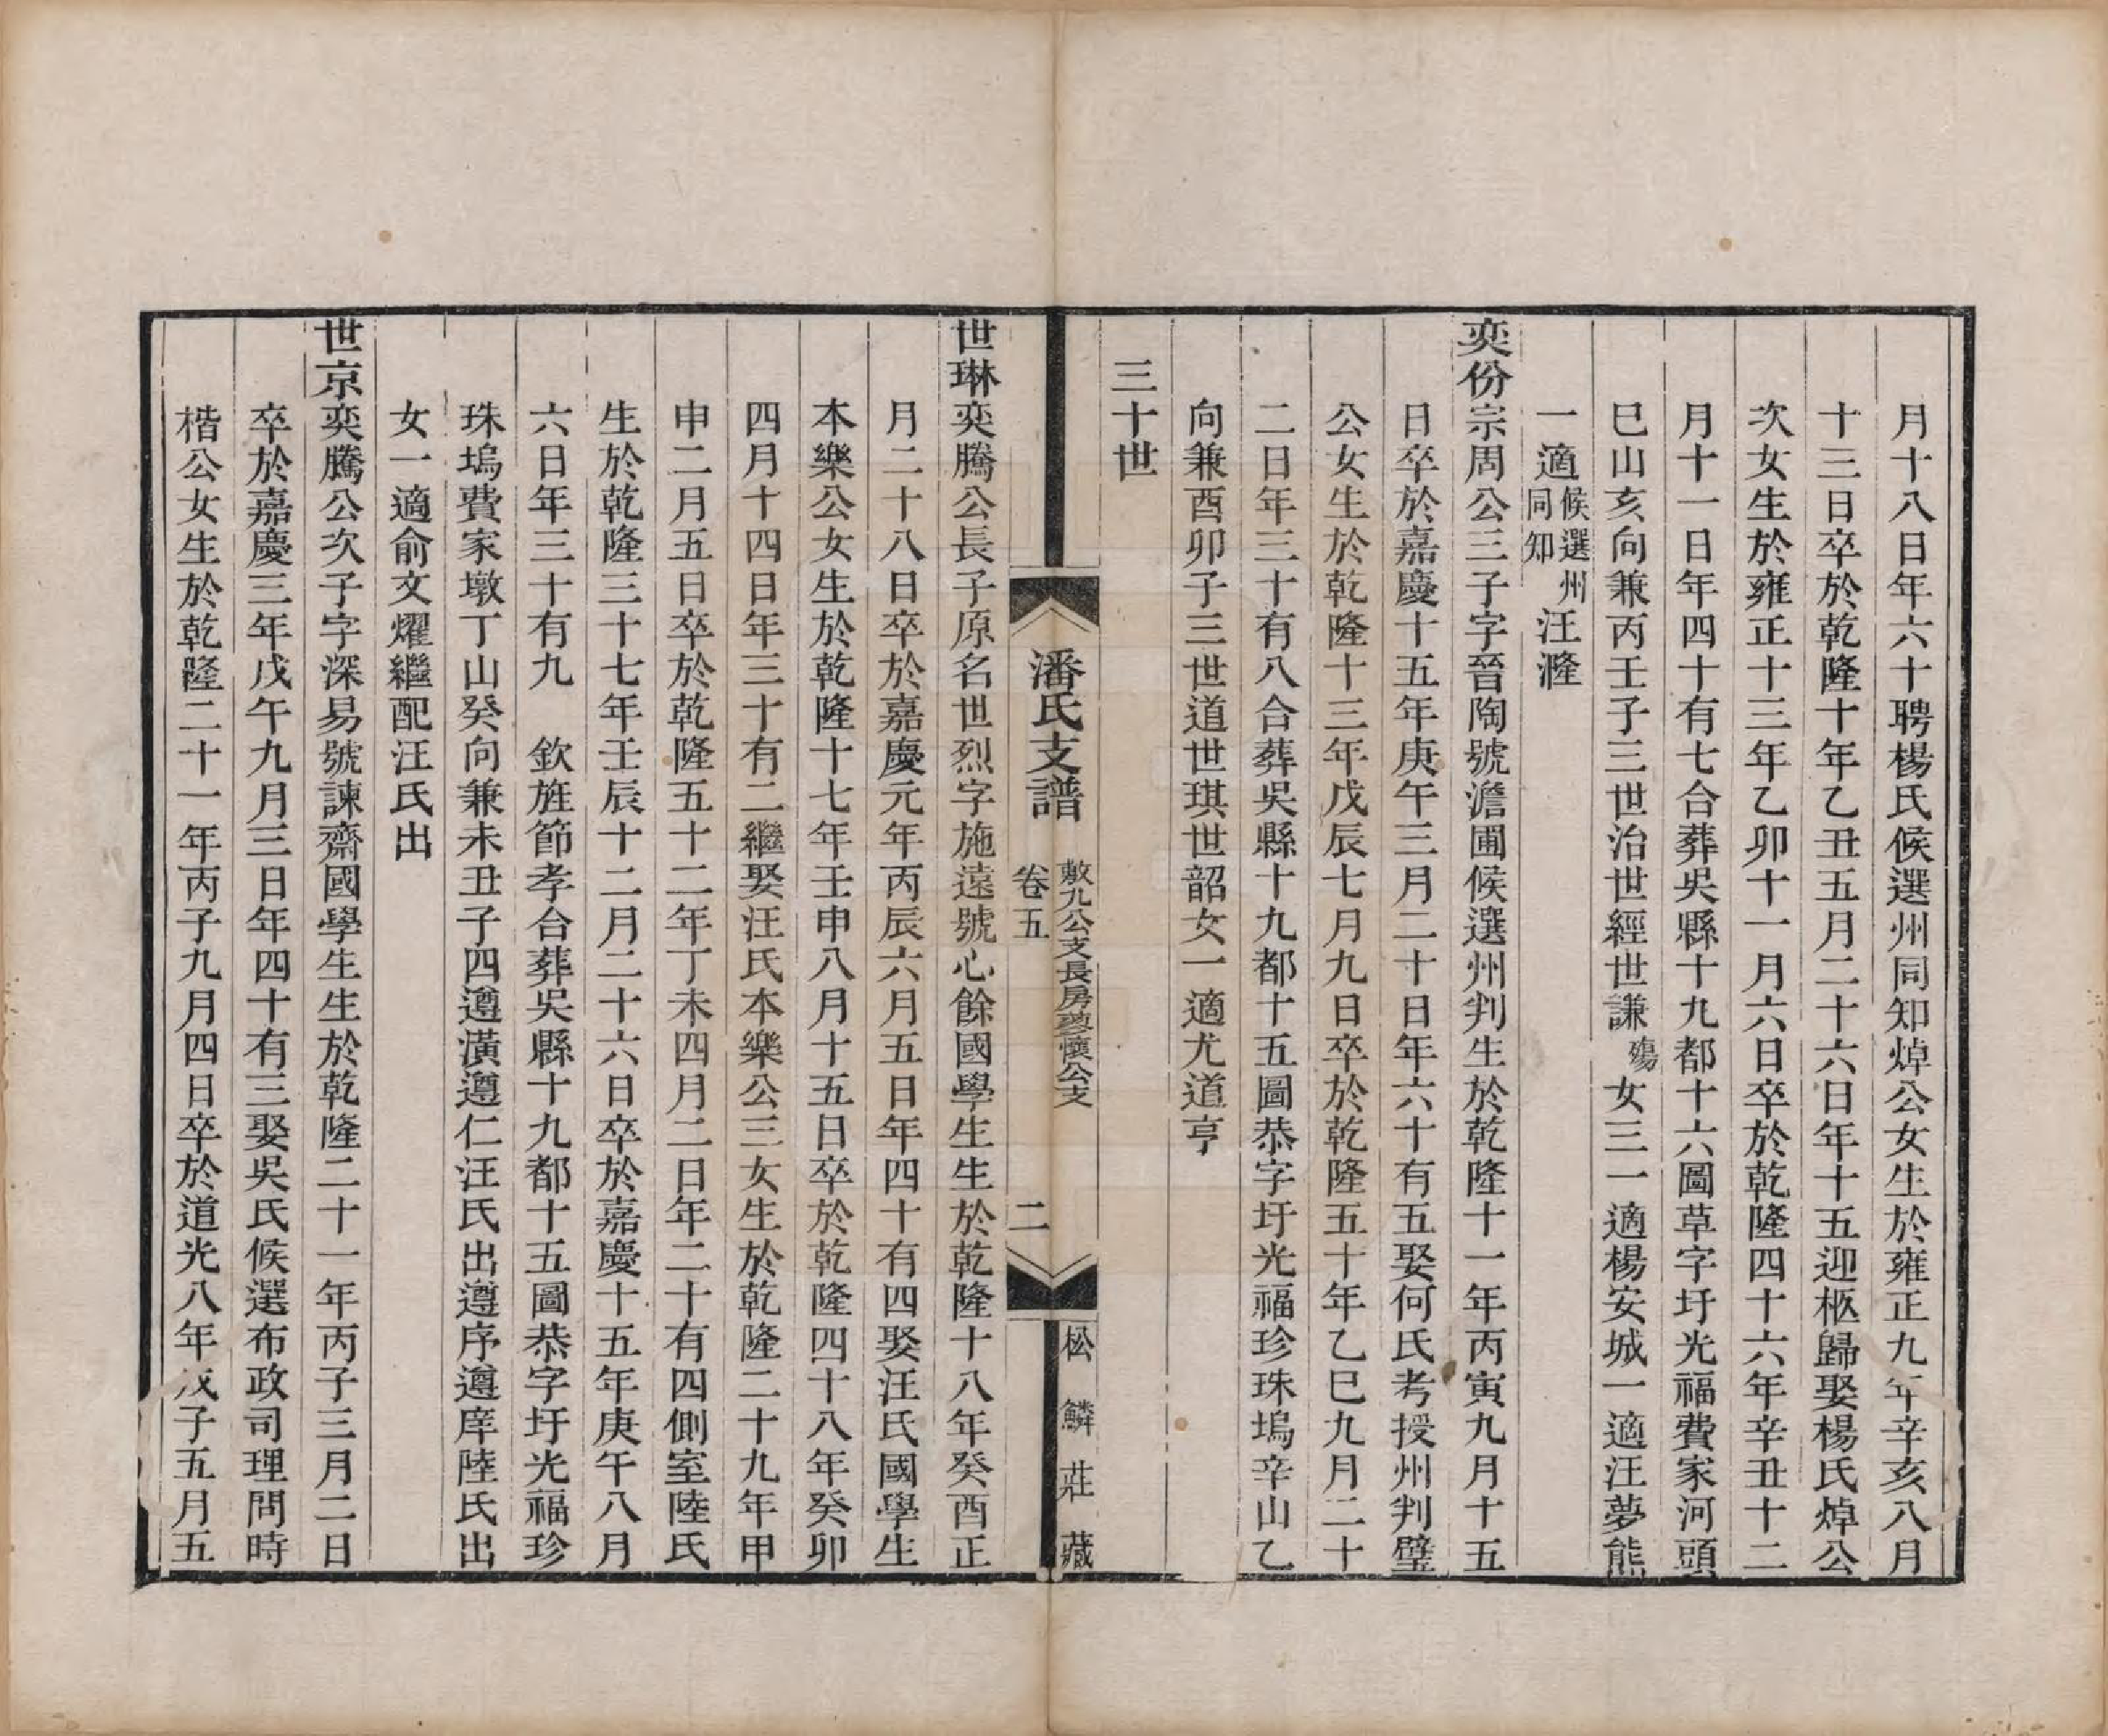 月十八日年六十聘楊氏候選州同知焯公女生於雍正九年辛亥八月
十三日卒於乾隆十年乙丑五月二十六日年十五迎柩歸娶楊氏焯公
次女生於雍正十三年乙卯十一月六日卒於乾隆四十六年辛丑十二
月十一日年四十有七合葬吳縣十九都十六圖草字圩光福費家河頭
巳山亥向兼丙壬子三世治世經世謙殤女三一適楊安城一適汪夢熊
一適候選州同知汪漋
奕份宗周公三子字晉陶號澹圃候選州判生於乾隆十一年丙寅九月十五
日卒於嘉慶十五年庚午三月二十日年六十有五娶何氏考授州判璧
公女生於乾隆十三年戊辰七月九日卒於乾隆五十年乙巳九月二十
二日年三十有八合葬吳縣十九都十五圖恭字圩光福珍珠塢辛山乙
向兼酉卯子三世道世琪世韶女一適尤道亨
三十世
潘氏支譜
敷九公支長房蓼懷公支
卷五
二
松鱗莊藏
世琳奕騰公長子原名世烈字施遠號心餘國學生生於乾隆十八年癸酉正
月二十八日卒於嘉慶元年丙辰六月五日年四十有四娶汪氏國學生
本樂公女生於乾隆十七年壬申八月十五日卒於乾隆四十八年癸卯
四月十四日年三十有二繼娶汪氏本樂公三女生於乾隆二十九年甲
申二月五日卒於乾隆五十二年丁未四月二日年二十有四側室陸氏
生於乾隆三十七年壬辰十二月二十六日卒於嘉慶十五年庚午八月
六日年三十有九　欽旌節孝合葬吳縣十九都十五圖恭字圩光福珍
珠塢費家墩丁山癸向兼未丑子四遵潢遵仁汪氏出遵序遵庠陸氏出
女一適俞文燿繼配汪氏出
世京奕騰公次子字深易號諫齋國學生生於乾隆二十一年丙子三月二日
卒於嘉慶三年戊午九月三日年四十有三娶吳氏候選布政司理問時
楷公女生於乾隆二十一年丙子九月四日卒於道光八年戊子五月五